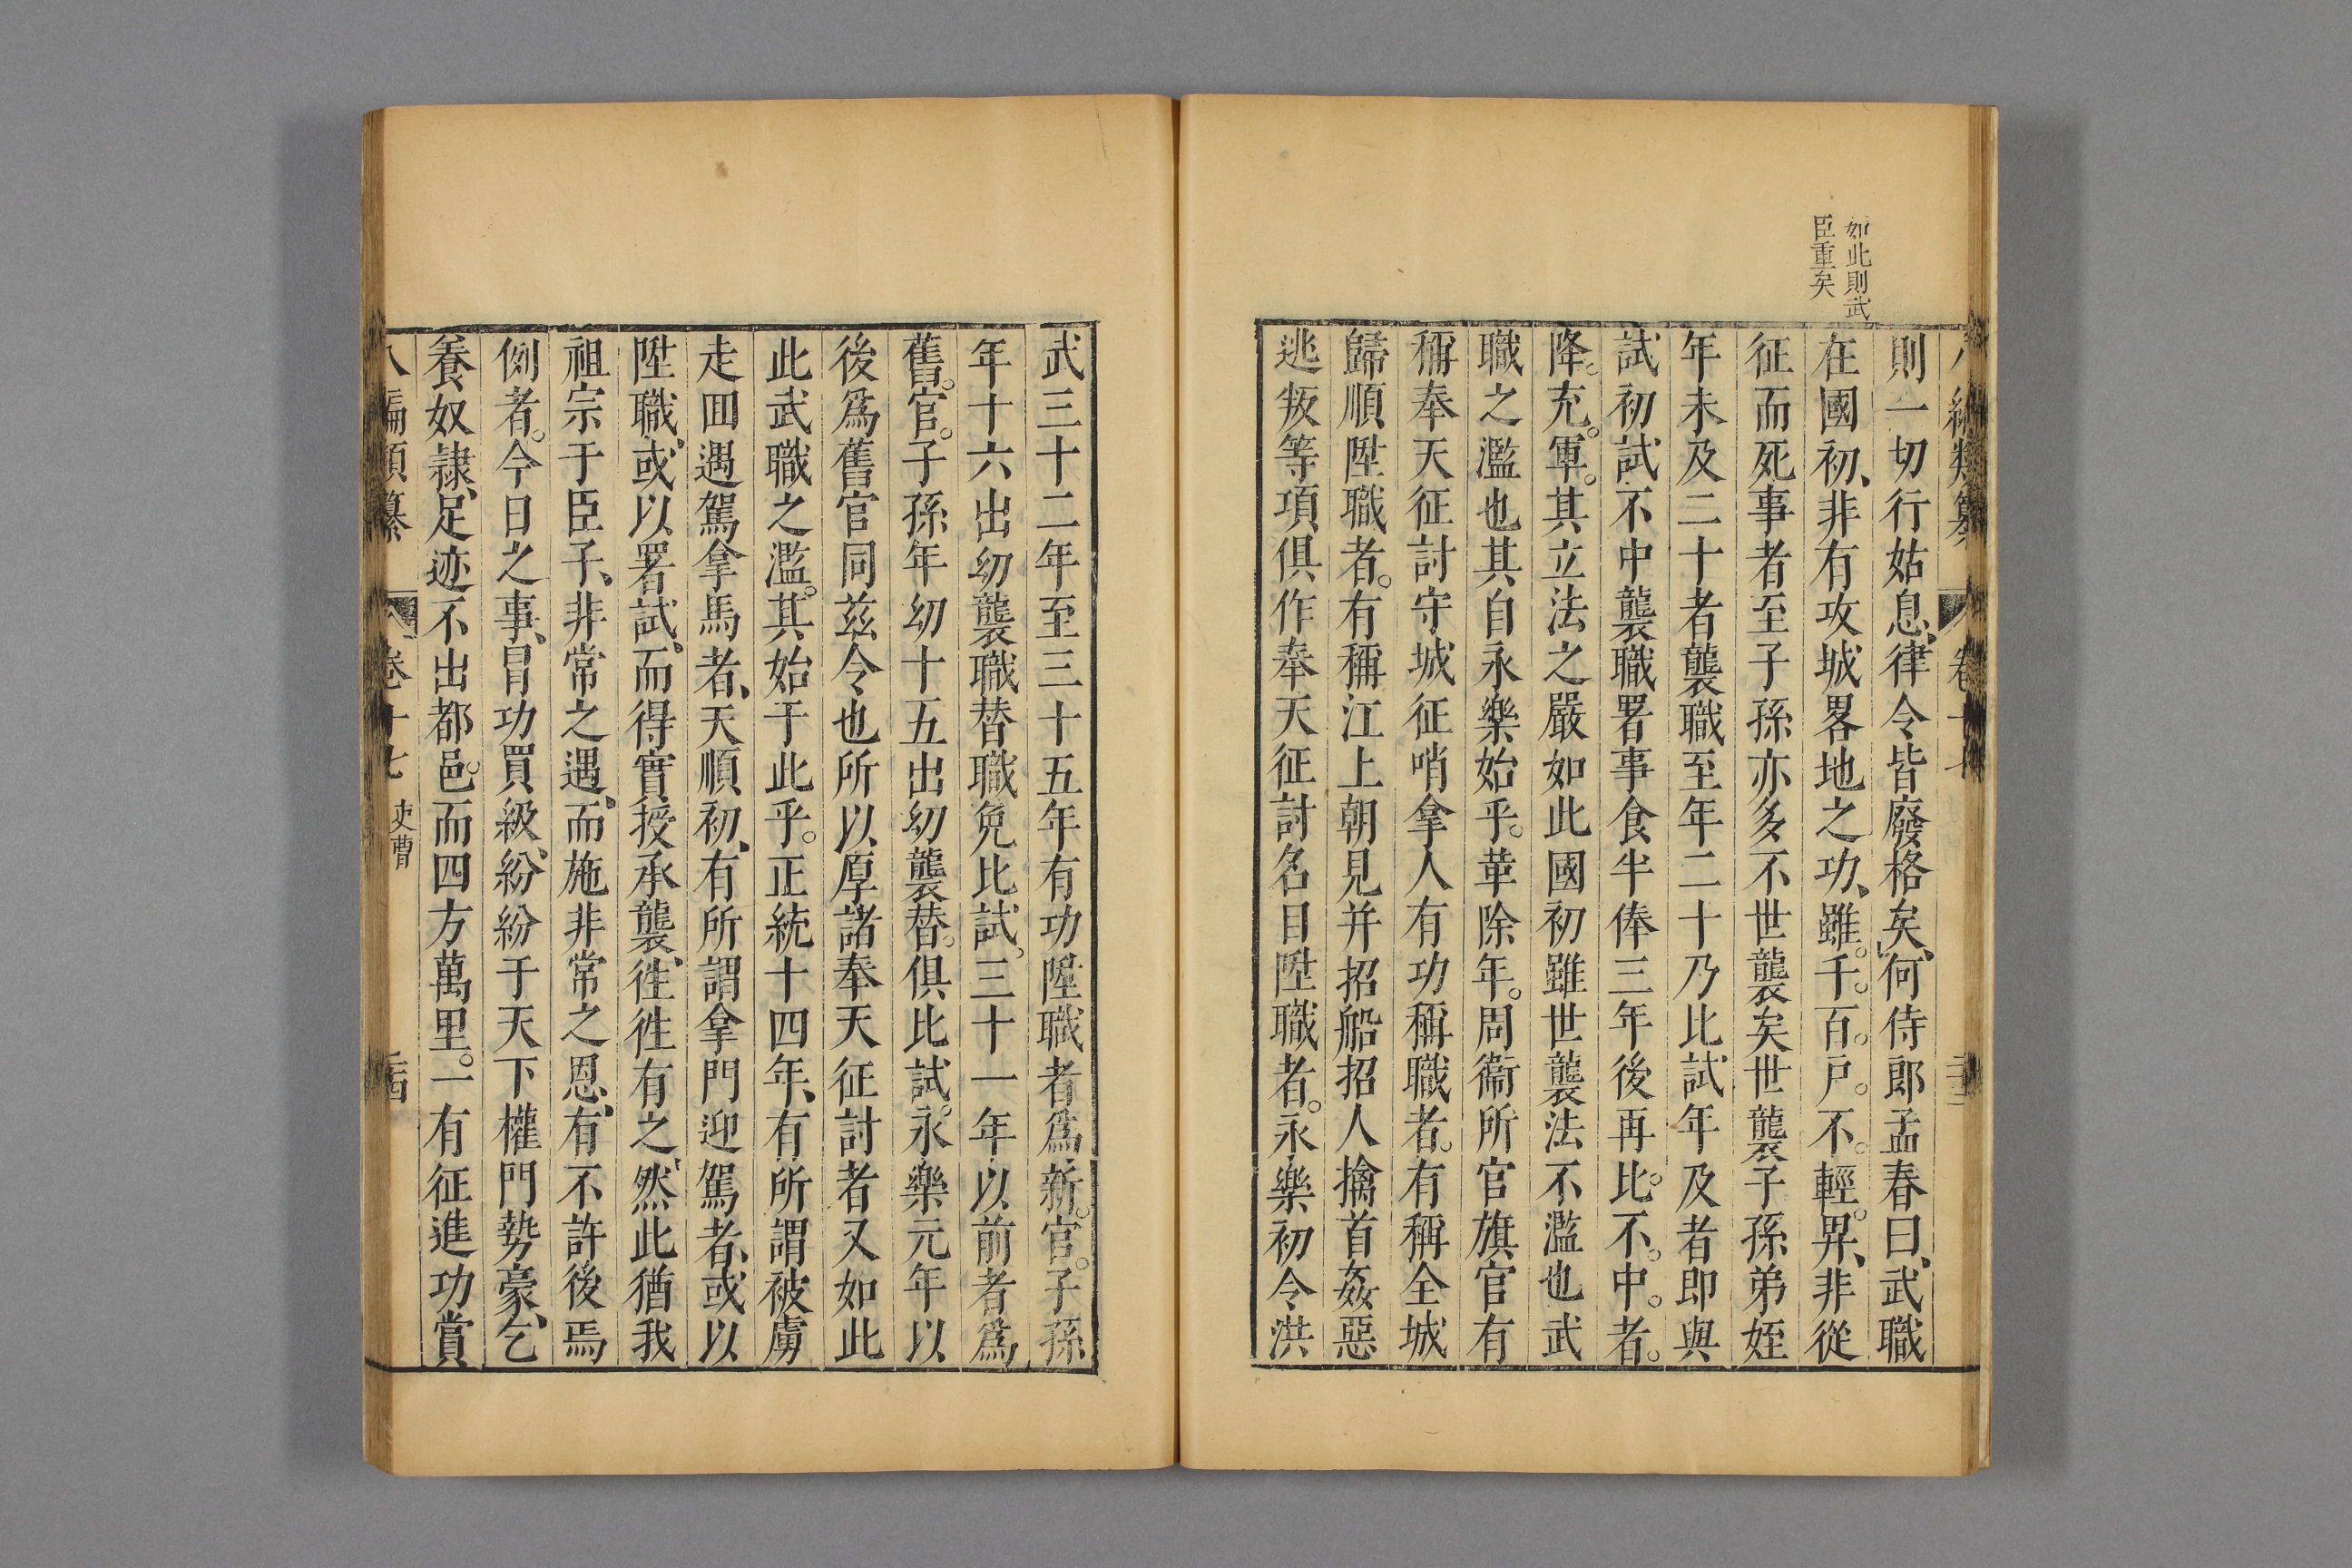 如此則武
臣重矣
則一切行姑息、律令皆廢格矣、何侍郎孟春曰、武職
在國初、非有攻城畧地之功、雖千百戶不輕畀、非從
征而死事者至子孫亦多不世襲矣世襲子孫弟姪
年未及二十者襲職至年二十乃比試年及者即與
試初試不中襲職署事食半俸三年後再比不中者
降充軍其立法之嚴如此國初雖世襲法不濫也武
職之濫也其自永樂始乎革除年周衞所官旗官有
稱奉天征討守城征哨拿人有功稱職者有稱全城
歸順陞職者有稱江上朝見并招船招人擒首姦惡
逃叛等項俱作奉天征討名目陞職者永樂初令洪
武三十二年至三十五年有功陞職者爲新官子孫
年十六出幼襲職替職免比試三十一年以前者爲
舊官子孫年幼十五出幼襲替俱比試永樂元年以
後爲舊官同兹令也所以厚諸奉天征討者又如此
此武職之濫其始于此乎正統十四年、有所謂被虜
走回遇駕拿馬者、天順初、有所謂拿門迎駕者、或以
陞職、或以署試、而得實授承襲、徃徃有之、然此猶我
祖宗于臣子、非常之遇、而施非常之恩、有不許後焉
例者今日之事、冒功買級、紛紛于天下權門勢豪、乞
養奴隷、足迹不出都邑而四方萬里一有征進功賞
八編類纂 卷十七 吏曹 二十四